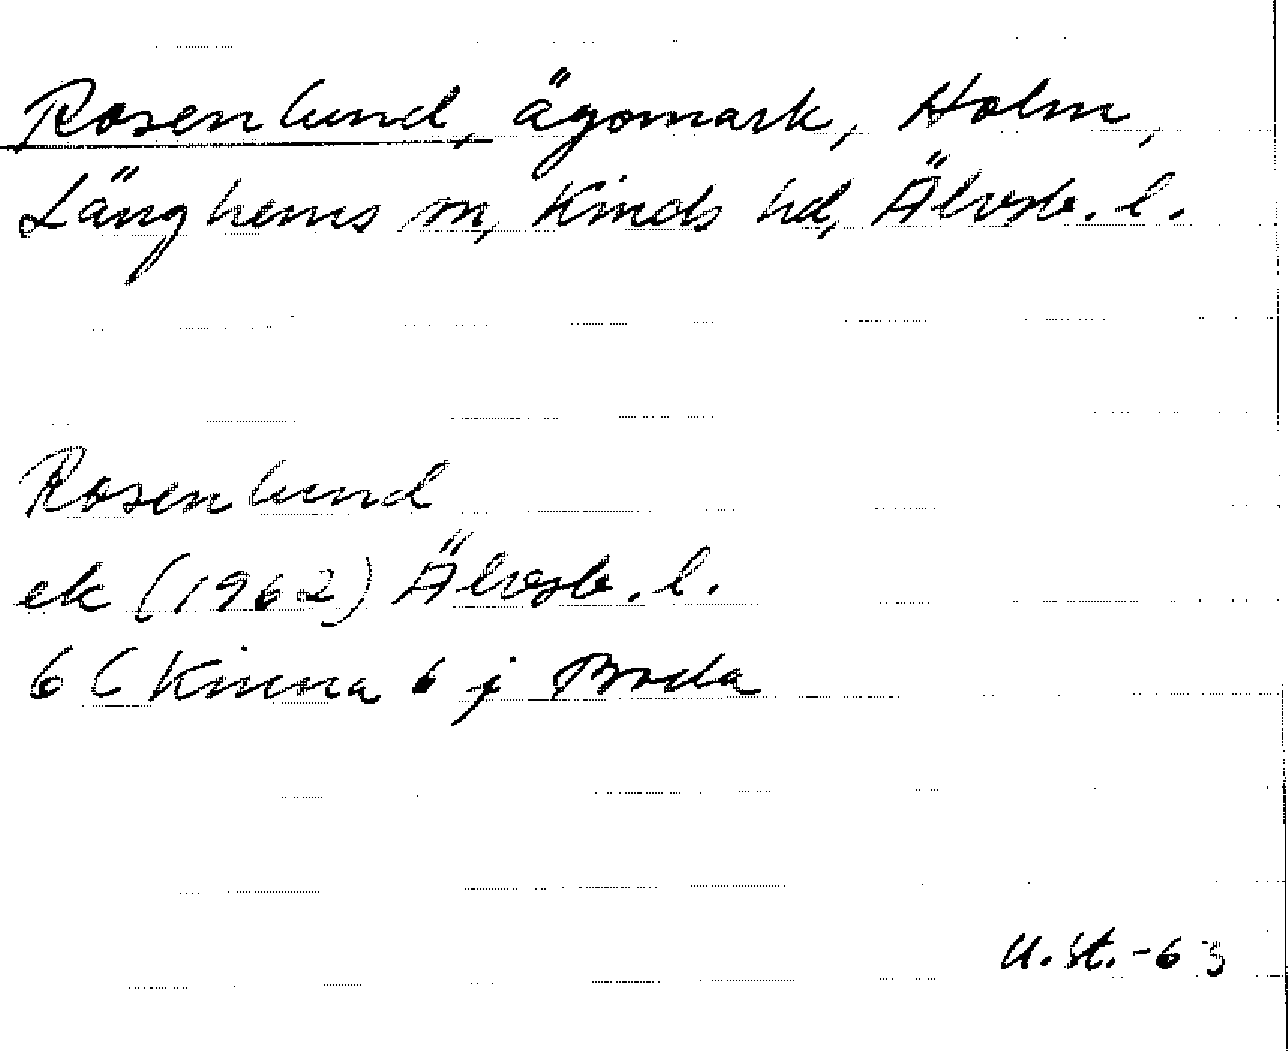 Rosenlund, ägomark, Holm,
Länghems sn, Kinds hd, Älvsb. l.
Rosenlund
ek (1962) Älvsb. l.
6 C Kinna 6 j Broda
U. St. -63